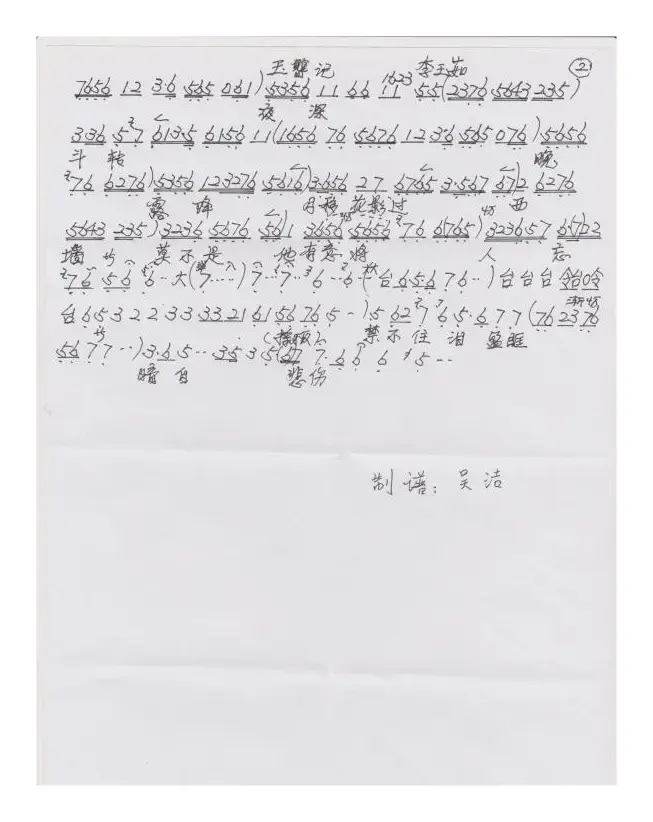 玉 记 1623 李玉茹 ②
7656 12 3·6 565 061) 5356 11 66 11 5·5 (2376 5643 235)
夜 深
3·36 5 7 6135 6156 11 (1656 76 5676 123·6 565 076) 5656
斗 转 晚
276 6276) 5356 123276 5616) 3656 27 6765 3·567 672 6276
露 降 月移花影过 西
5643 235) 3236 5676 561 3656 5656 76 6765) 3236·57 6722
墙 莫不是 他有意将 人 忘
76 56 6·· 大 (7····) 7··77 6··6 (台 65·6 76··) 台台台
台 6532233 3321 6156 765--) ·562 765·677 (762376
禁不住泪盈眶
5677··) 3·65··· 35 35 67 7·66 6 5--
暗自 悲伤
制谱：吴洁